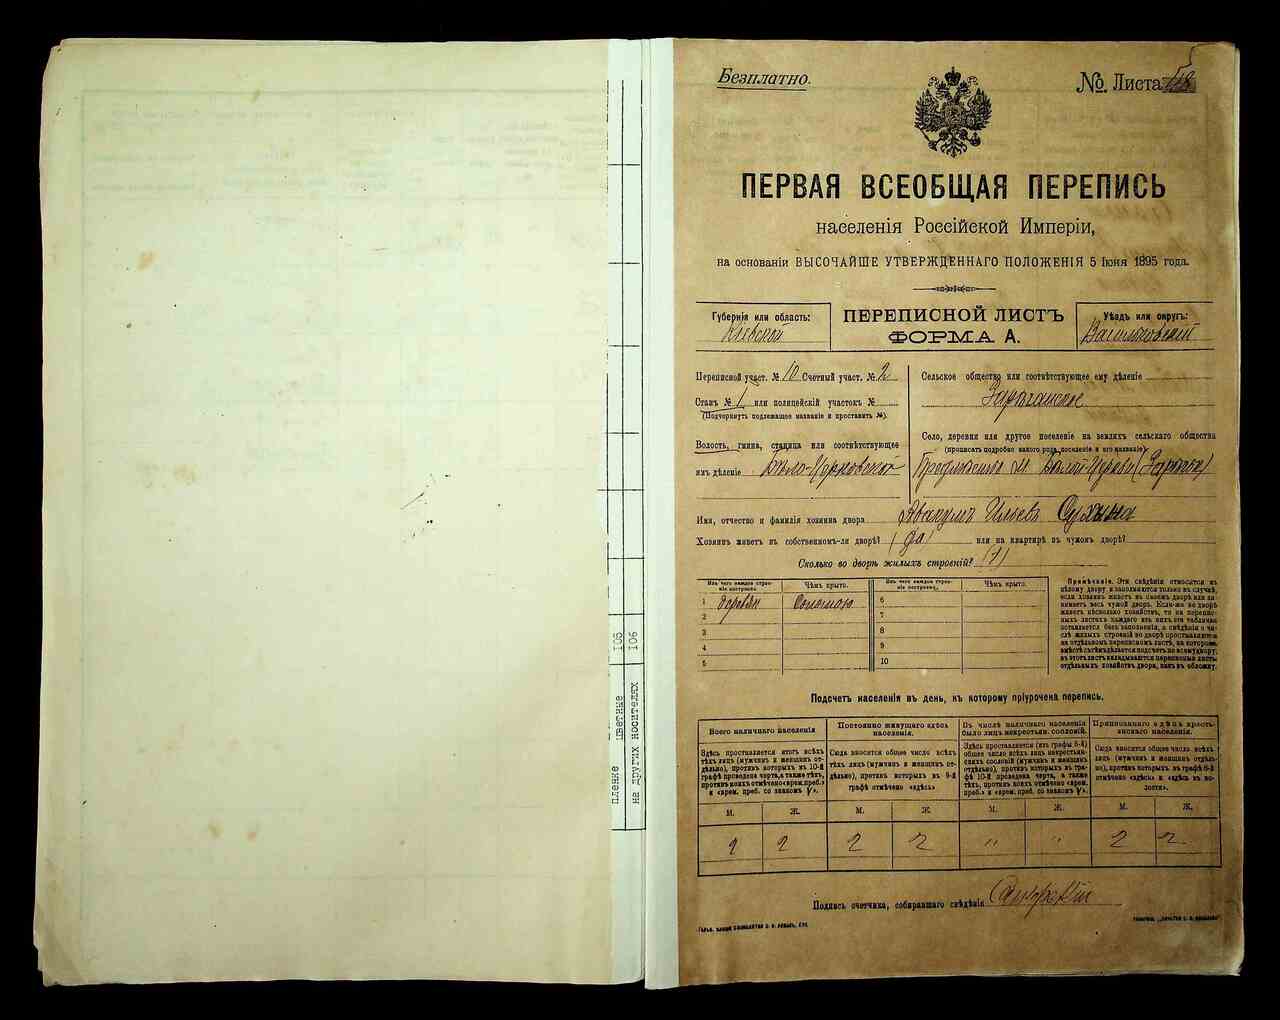 106
106
пленке
цветные
на других носителях
Безплатно.
№ Листа 518
ПЕРВАЯ ВСЕОБЩАЯ ПЕРЕПИСЬ
населенія Россійской Имперіи,
на основаніи ВЫСОЧАЙШЕ УТВЕРЖДЕННАГО ПОЛОЖЕНІЯ 5 Іюня 1895 года.
Губернія или область:
Кіевской
ПЕРЕПИСНОЙ ЛИСТЪ
ФОРМА А.
Уѣздъ или округъ:
Васильковскій
Переписной участ. № 10 Счетный участ. № 2
Станъ № 1 или полицейскій участокъ №
(Подчеркнуть подлежащее названіе и проставить №).
Волость, гмина, станица или соотвѣтствующее
имъ дѣленіе Бѣло-Церковской
Сельское общество или соотвѣтствующее ему дѣленіе
Зарѣчанское
Село, деревня или другое поселеніе на земляхъ сельскаго общества
(прописать подробно какого рода поселеніе и его названіе)
Предмѣстье м. Бѣлой-Церкви (Зарѣчье)
Имя, отчество и фамилія хозяина двора Аввакумъ Ильевъ Сухина
Хозяинъ живетъ въ собственномъ-ли дворѣ? (да) или на квартирѣ въ чужомъ дворѣ?
Сколько во дворѣ жилыхъ строеній? (1)
Изъ чего каждое строеніе построено.
Чѣмъ крыто.
Изъ чего каждое строеніе построено.
Чѣмъ крыто.
1 деревян Соломою 6
2 7
3 8
4 9
5 10
Примѣчаніе. Эти свѣдѣнія относятся къ
цѣлому двору и заполняются только въ случаѣ,
если хозяинъ живетъ въ своемъ дворѣ или занимаетъ
весь чужой дворъ. Если-же во дворѣ
живетъ нѣсколько хозяйствъ, то на переписныхъ
листахъ каждаго изъ нихъ эта табличка
оставляется безъ заполненія, а свѣдѣнія о числѣ
жилыхъ строеній во дворѣ проставляются
на отдѣльномъ переписномъ листѣ, на которомъ
вмѣстѣ съ тѣмъ дѣлается подсчетъ по всему двору;
въ этотъ листъ вкладываются переписные листы
отдѣльныхъ хозяйствъ двора, какъ въ обложку.
Подсчетъ населенія въ день, къ которому пріурочена перепись.
Всего наличнаго населенія
Здѣсь проставляется итогъ всѣхъ
тѣхъ лицъ (мужчинъ и женщинъ отдѣльно),
противъ которыхъ въ 10-й
графѣ проведена черта, а также тѣхъ,
противъ коихъ отмѣчено «врем. преб.»
и «врем. преб. со знакомъ V».
Постоянно живущаго здѣсь населенія.
Сюда вносится общее число всѣхъ
тѣхъ лицъ (мужчинъ и женщинъ отдѣльно),
противъ которыхъ въ 9-й
графѣ отмѣчено «здѣсь»
Въ числѣ наличнаго населенія
было лицъ некрестьян. сословій.
Здѣсь проставляется (изъ графы 5-й)
общее число всѣхъ лицъ некрестьянскихъ
сословій (мужчинъ и женщинъ
отдѣльно), противъ которыхъ въ графѣ
10-й проведена черта, а также
тѣхъ, противъ коихъ отмѣчено «врем.
преб.» и «врем. преб. со знакомъ V».
Приписаннаго здѣсь крестьянскаго населенія.
Сюда вносится общее число всѣхъ
лицъ (мужчинъ и женщинъ отдѣльно),
противъ которыхъ въ графѣ 8-й
отмѣчено «здѣсь» и «здѣсь въ волости».
М. Ж. М. Ж. М. Ж. М. Ж.
2 2 2 2 " " 2 2
Подпись счетчика, собиравшаго свѣдѣнія